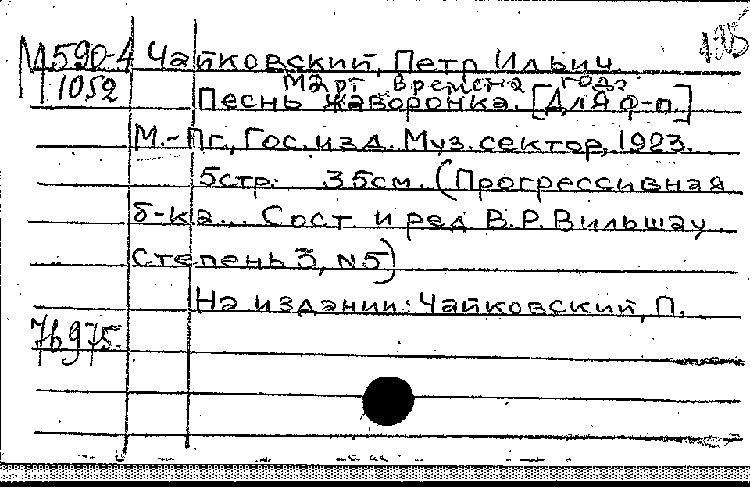 М590-1 Чайковский, Петр Ильич
Март Времена года
1052 Песнь жаворонка. [Для ф-п.]
М.-Пг., Гос. изд. Муз. сектор, 1923.
5стр. 35см. (Прогрессивная
б-ка... Сост. и ред. В.Р. Вильшау.
Степень 3, N5)
На издании: Чайковский, П.
76975.